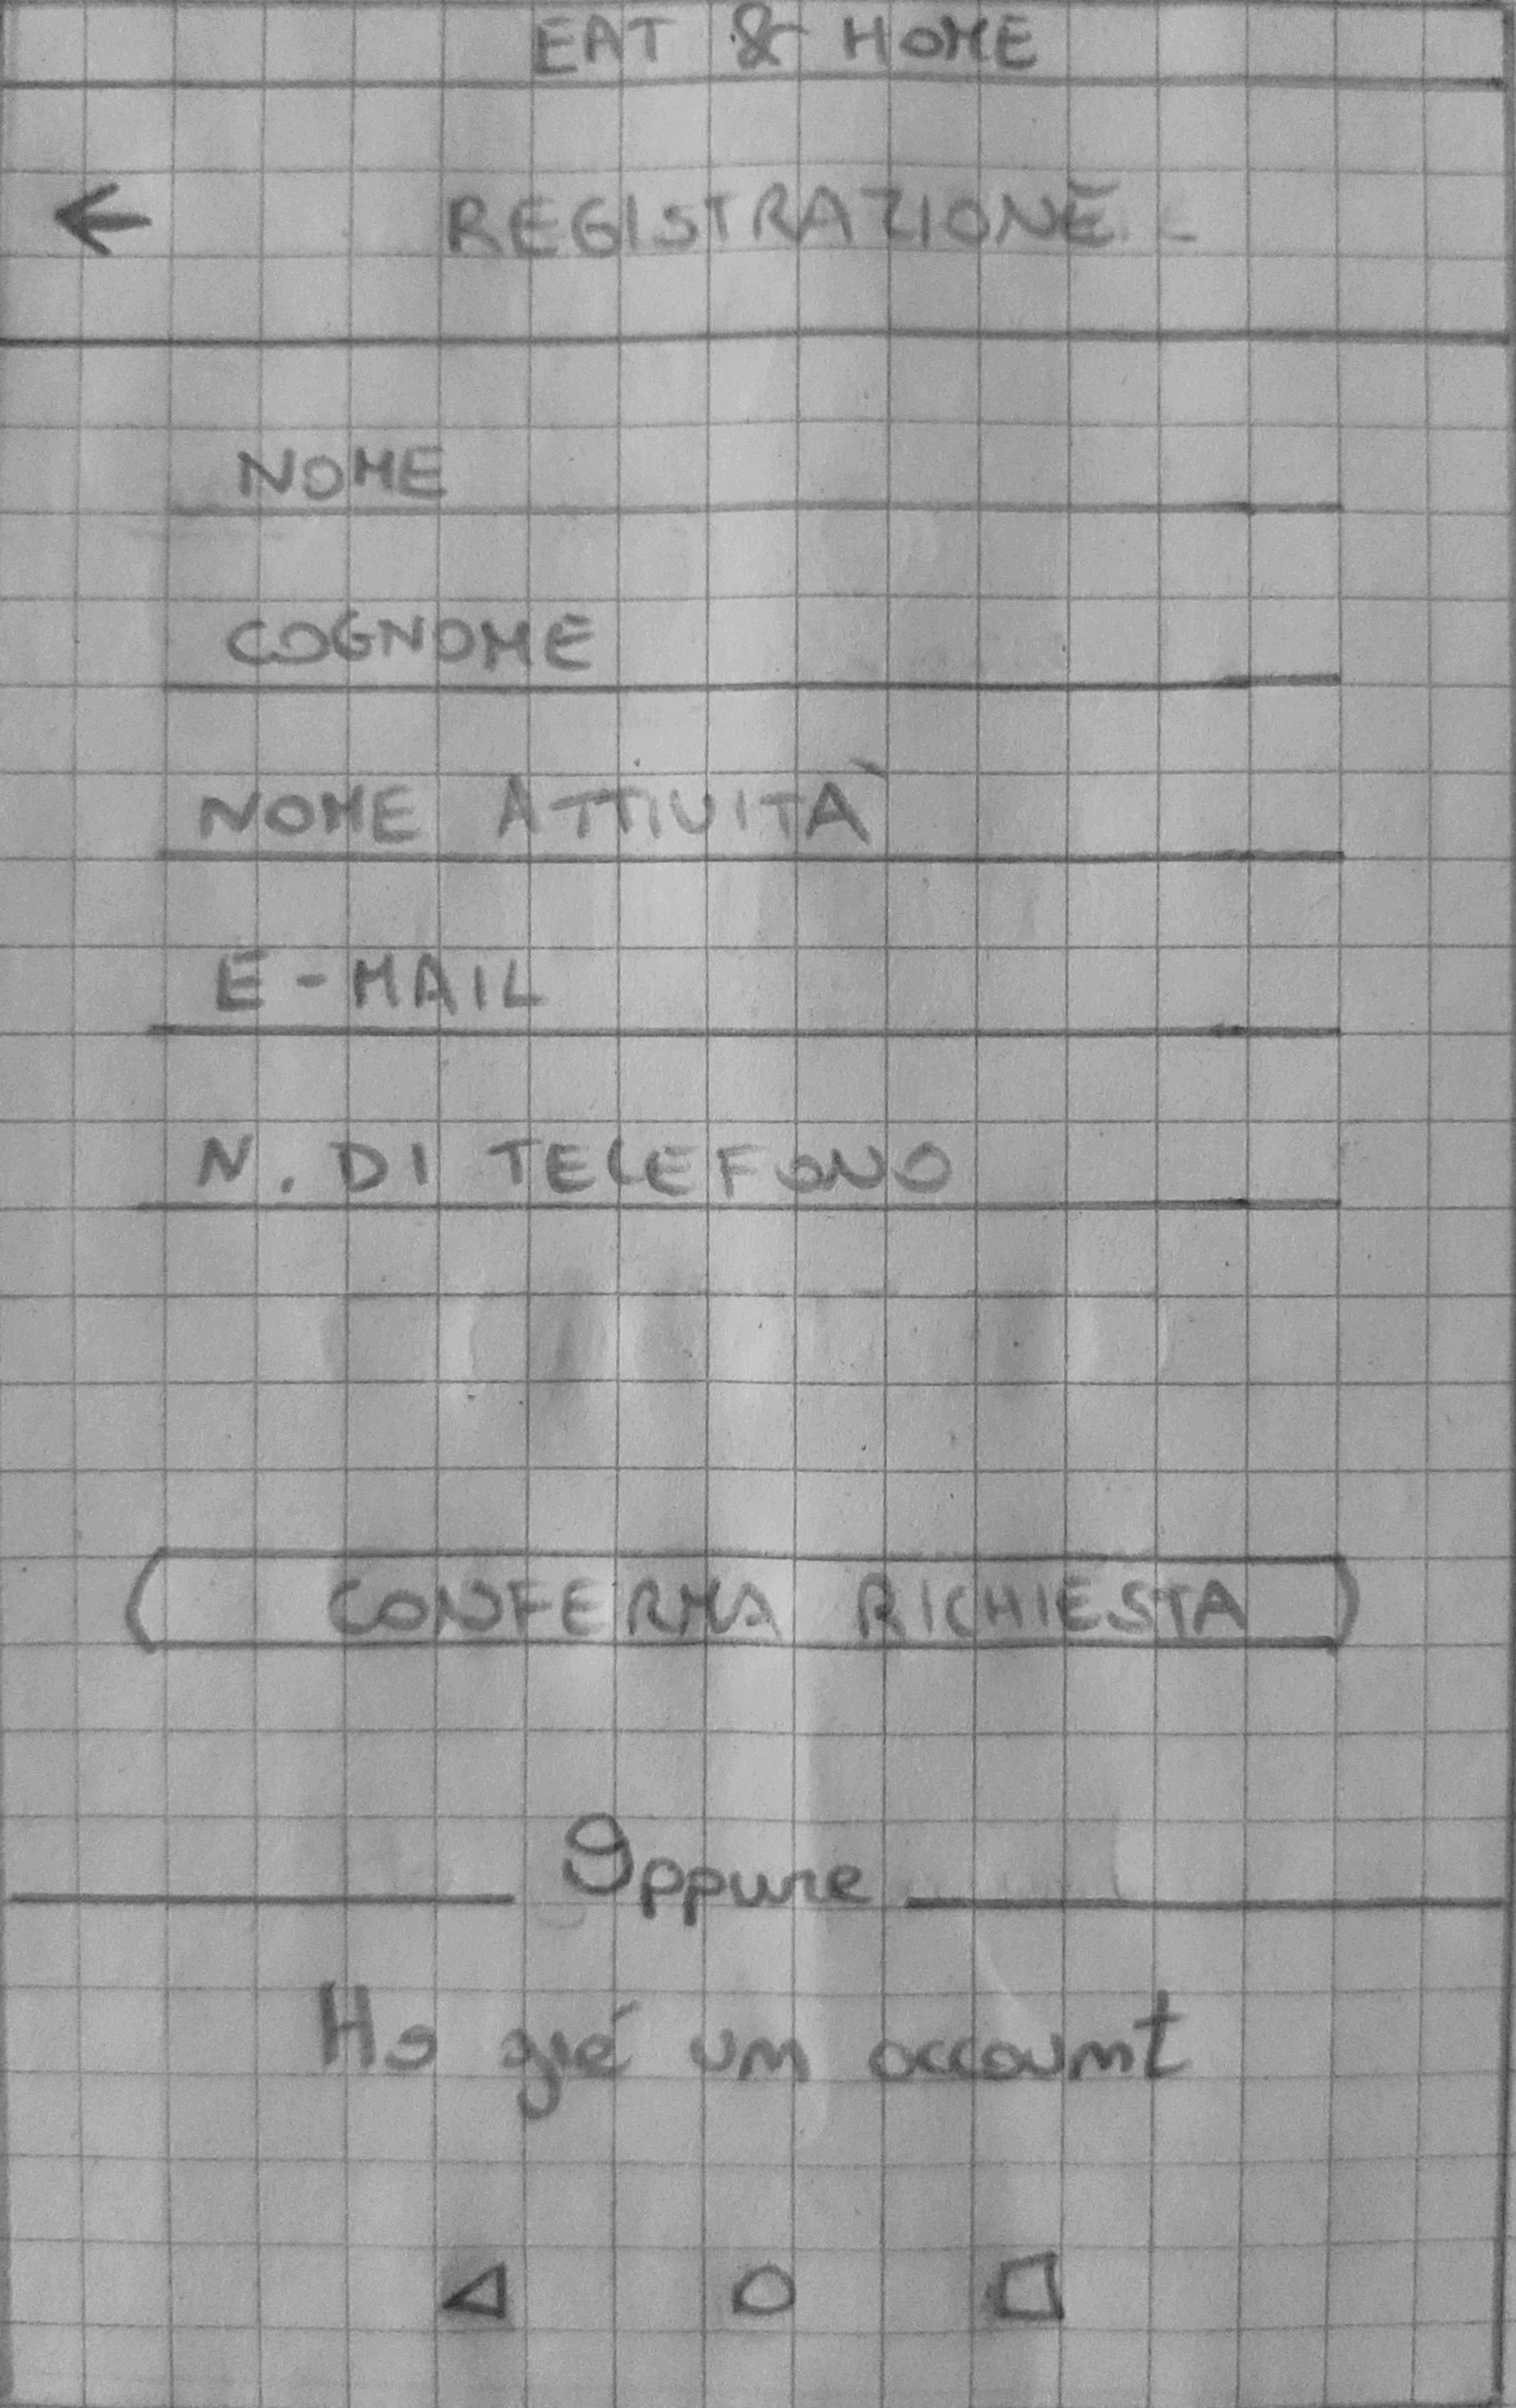 EAT & HOME
← REGISTRAZIONE
NOME
COGNOME
NOME ATTIVITÀ
E-MAIL
N. DI TELEFONO
CONFERMA RICHIESTA
Oppure
Ho gié um account